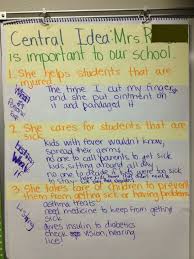 Central Idea: Mrs. R
is important to our school.
1. She helps students that are
injured.
The time I cut my finger
and she put ointment on
it and bandaged it
2. She cares for students that are
sick.
kids with fever wouldn't know,
spread their germs
no one to call parents to get sick
kids, sitting around all day
no one to decide if kids were too sick
to stay
3. She takes care of children to prevent
them from getting sick or having
eating meals
need medicine to keep from getting
sick
gives insulin to diabetics
check vision, hearing
lice!